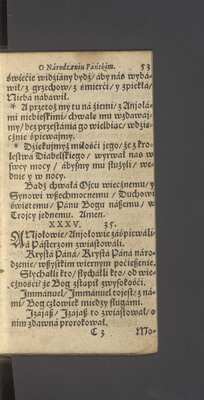 O Národzeniu Páńſkim. 53
świećie widziány bydź / áby nás wybá-
wił / z grzechow / z śmierći / y z piekłá /
Niebá nábáwił.
* A przetoż my tu ná źiemi / z Anjołá-
mi niebieſkimi / chwałę mu wzdawaẏ-
my / bez przeſtánia go wielbiąc / wdzię-
cznie śpiewaẏmy.
* Dźiękuẏmyż miłośći jego / że z kro-
leſtwá Diabelſkiego / wyrwał nas w
ſwey mocy / ábyſmy mu ſłużyli / we-
dnie y w nocy.
Bądź chwałá Oẏcu wiecżnemu / y
Synowi wſzechmocnemu / Duchowi
świętemu / Pánu Bogu náſzemu / w
Troycy jednemu. Amen.
XXXV. 35.
ANjołowie / Anjołowie záśpiewáli /
Aá Páſterzom zwiáſtowáli.
Kryſtá Páná / Kryſtá Páná národzenie / wſzyſtkim wiernym poćieſzenie.
Słycháłli kto / ſłycháłli kto / od wie-
cżnośći / że Bog zſtąpił z wyſokośći.
Immánuel / Immánuel to jeſt / z ná-
mi / Bog cżłowiek między ſługámi.
Izájaſz / Izájaſz to zwiáſtował / o
nim zdawná prorokował.
C 3 Mo-